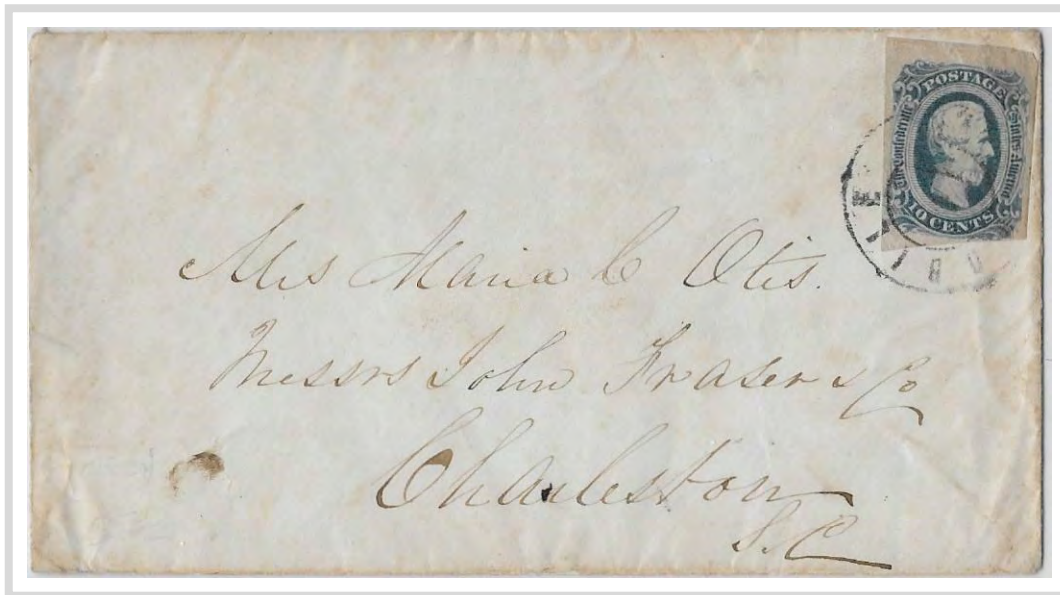 POSTAGE
The Confederate States America
10 CENTS
O B I L E
Mrs Maria C Otis.
Messrs John Fraser & Co
Charleston
S.C